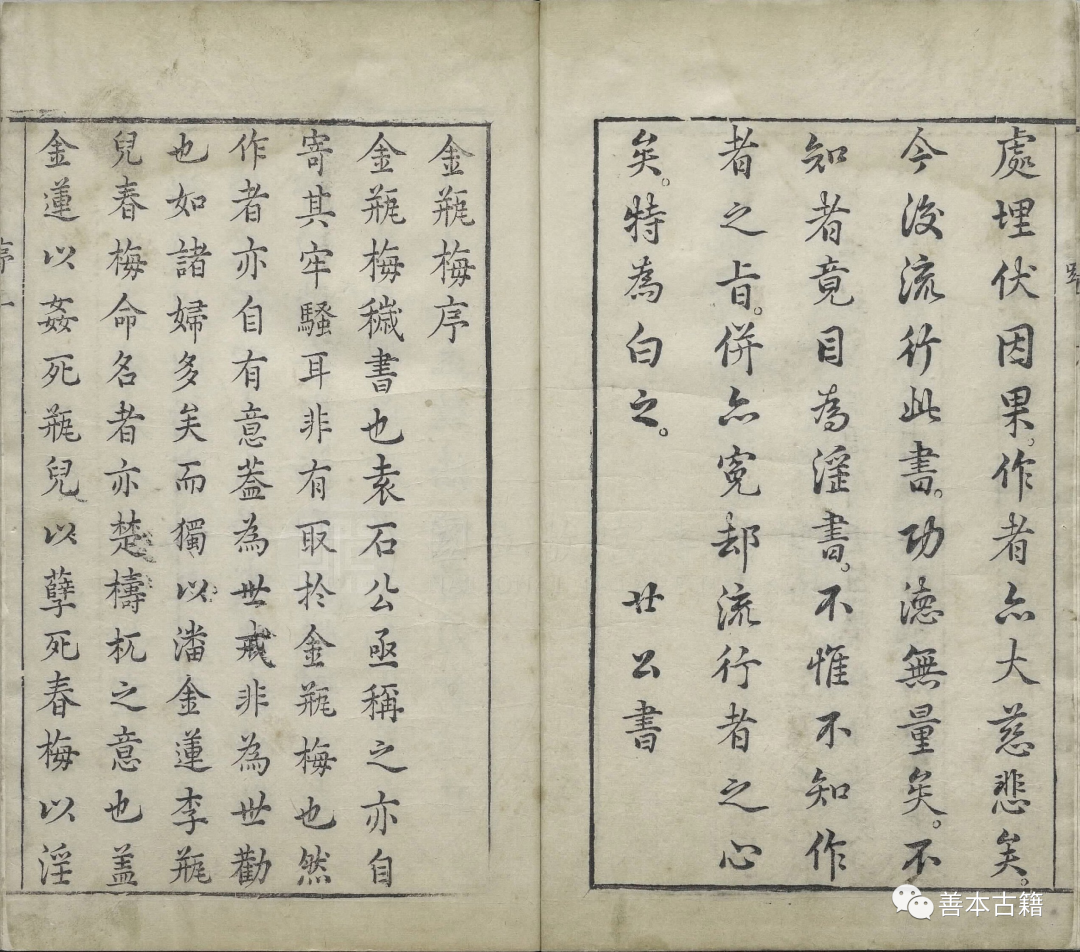 處埋伏因果。作者亦大慈悲矣。
今後流行此書。功德無量矣。不
知者竟目為淫書。不惟不知作
者之旨。併亦冤却流行者之心
矣。特為白之。
廿公書
金瓶梅序
金瓶梅穢書也袁石公亟稱之亦自
寄其牢騷耳非有取於金瓶梅也然
作者亦自有意葢為世戒非為世勸
也如諸婦多矣而獨以潘金蓮李瓶
兒春梅命名者亦楚檮杌之意也盖
金蓮以姦死瓶兒以孽死春梅以淫
序一
善本古籍